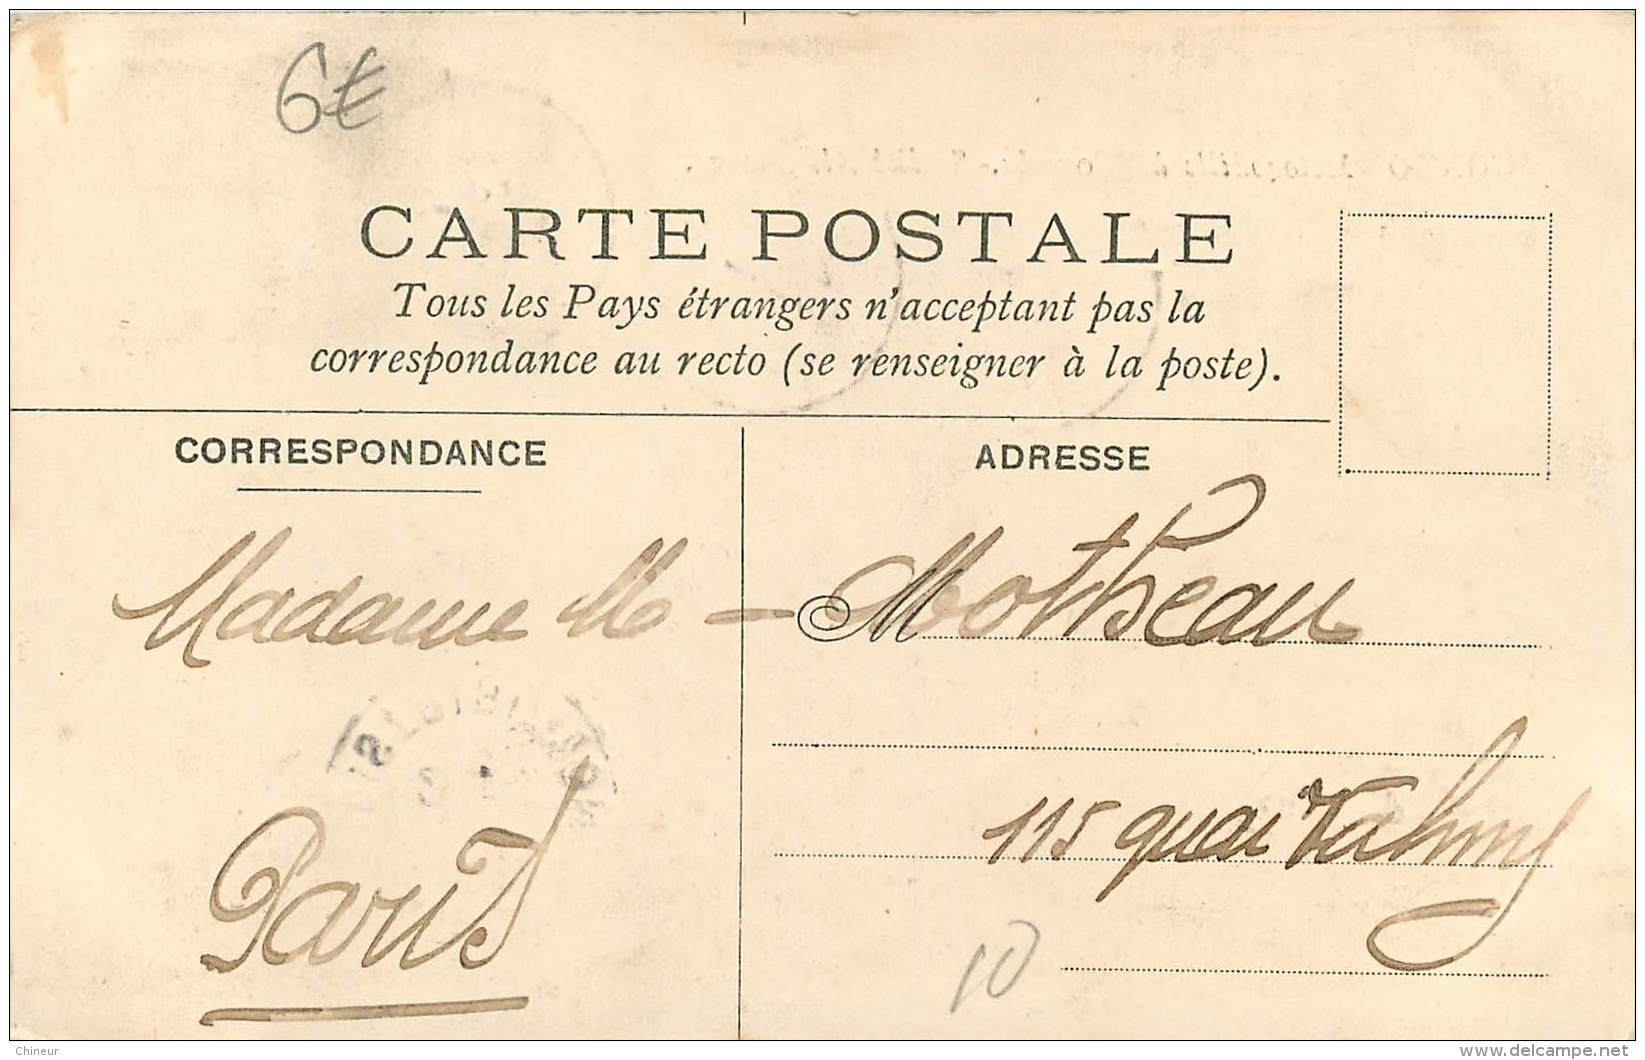 6€
CARTE POSTALE
Tous les Pays étrangers n'acceptant pas la
correspondance au recto (se renseigner à la poste).
CORRESPONDANCE
ADRESSE
Madame M - Motheau
115 quai Valmy
Paris
10
Chineur
delcampe.net